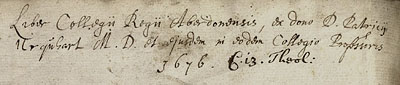 Liber Collegii Regii Aberdonensis, ex dono D. Patricij
Urquhart M. D. et ejusdem in eodem Collegio Professoris
1676. Theol: